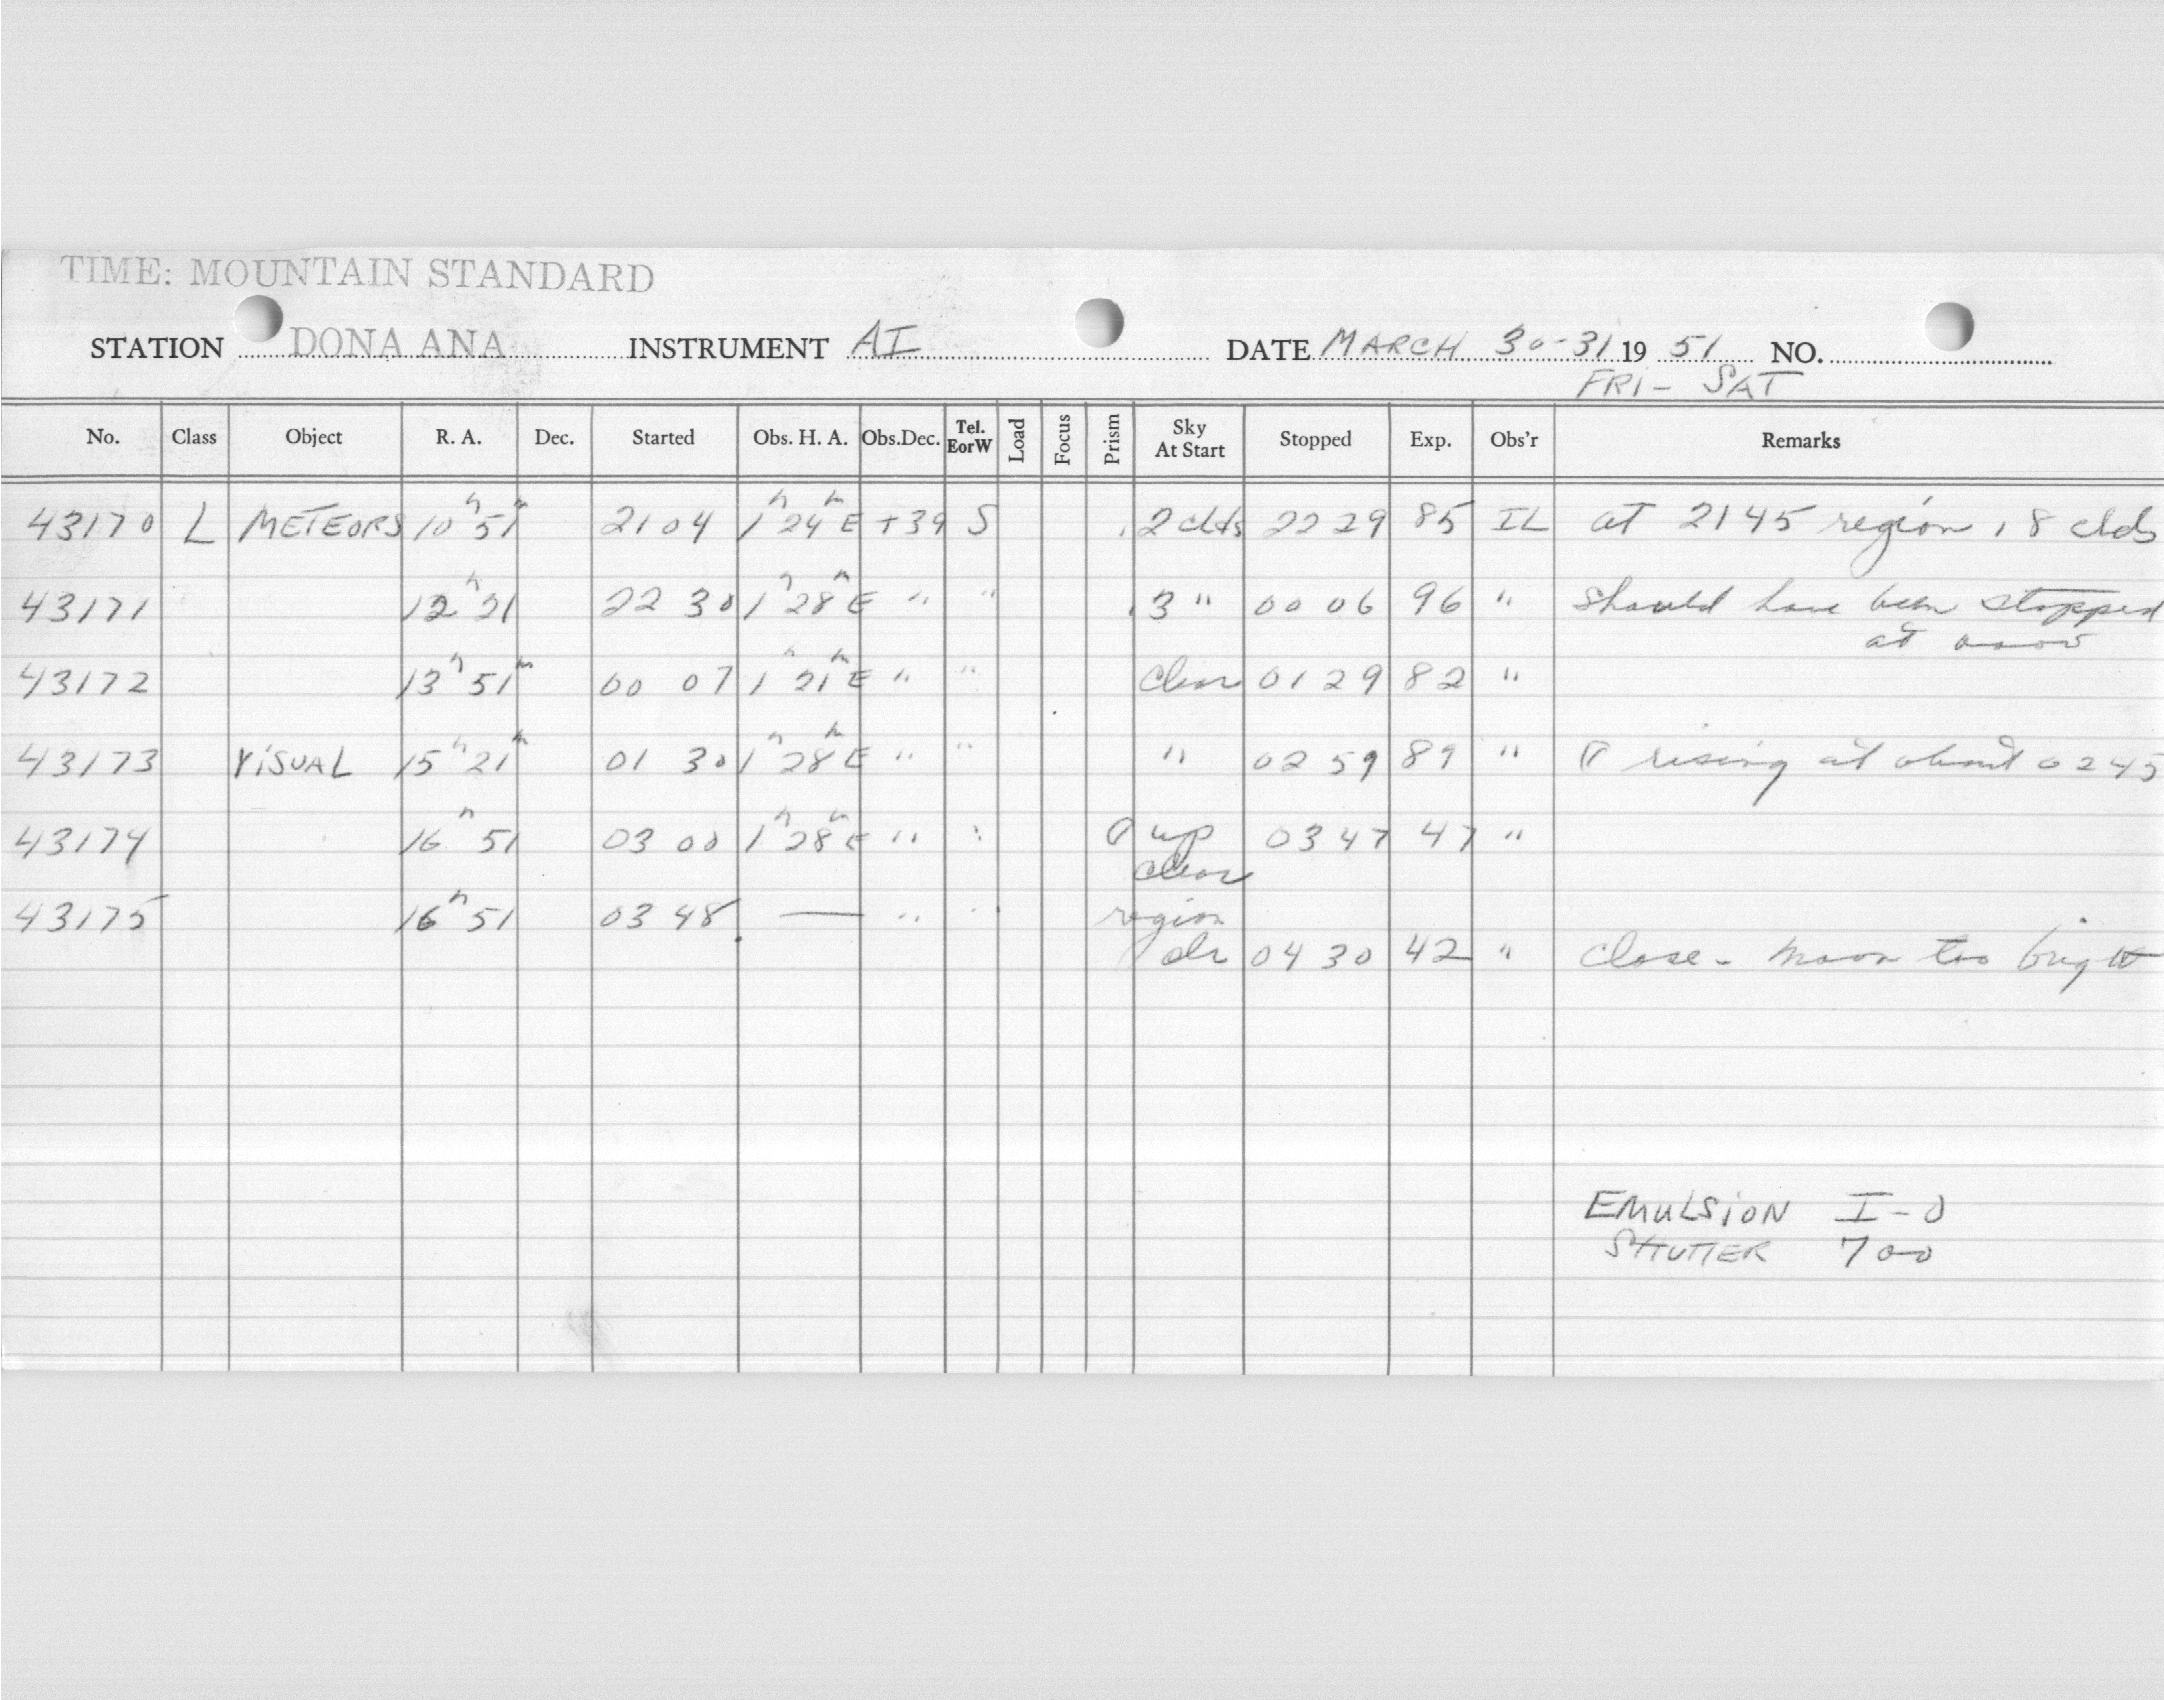 TIME: MOUNTAIN STANDARD
STATION DONA ANA INSTRUMENT AI DATE MARCH 30-31 19 51 NO.
FRI - SAT
No. Class Object R. A. Dec. Started Obs. H. A. Obs.Dec. Tel. EorW Load Focus Prism Sky At Start Stopped Exp. Obs'r Remarks
43170 L METEORS 10h 51m 2104 1h 24m E +39 S .2 clds 2229 85 IL at 2145 region .8 clds
43171 12h 21 22 30 1h 28m E " " .3 " 00 06 96 " should have been stopped
at 0000
43172 13h 51m 00 07 1h 21m E " " Clear 0129 82 "
43173 VISUAL 15h 21m 01 30 1h 28m E " " " 02 59 89 " rising at about 0245
43174 16h 51 03 00 1h 28m E " " up 0347 47 "
clear
43175 16h 51 03 48 — " " region
clr 04 30 42 " Close - moon too bright
EMULSION I-O
SHUTTER 700